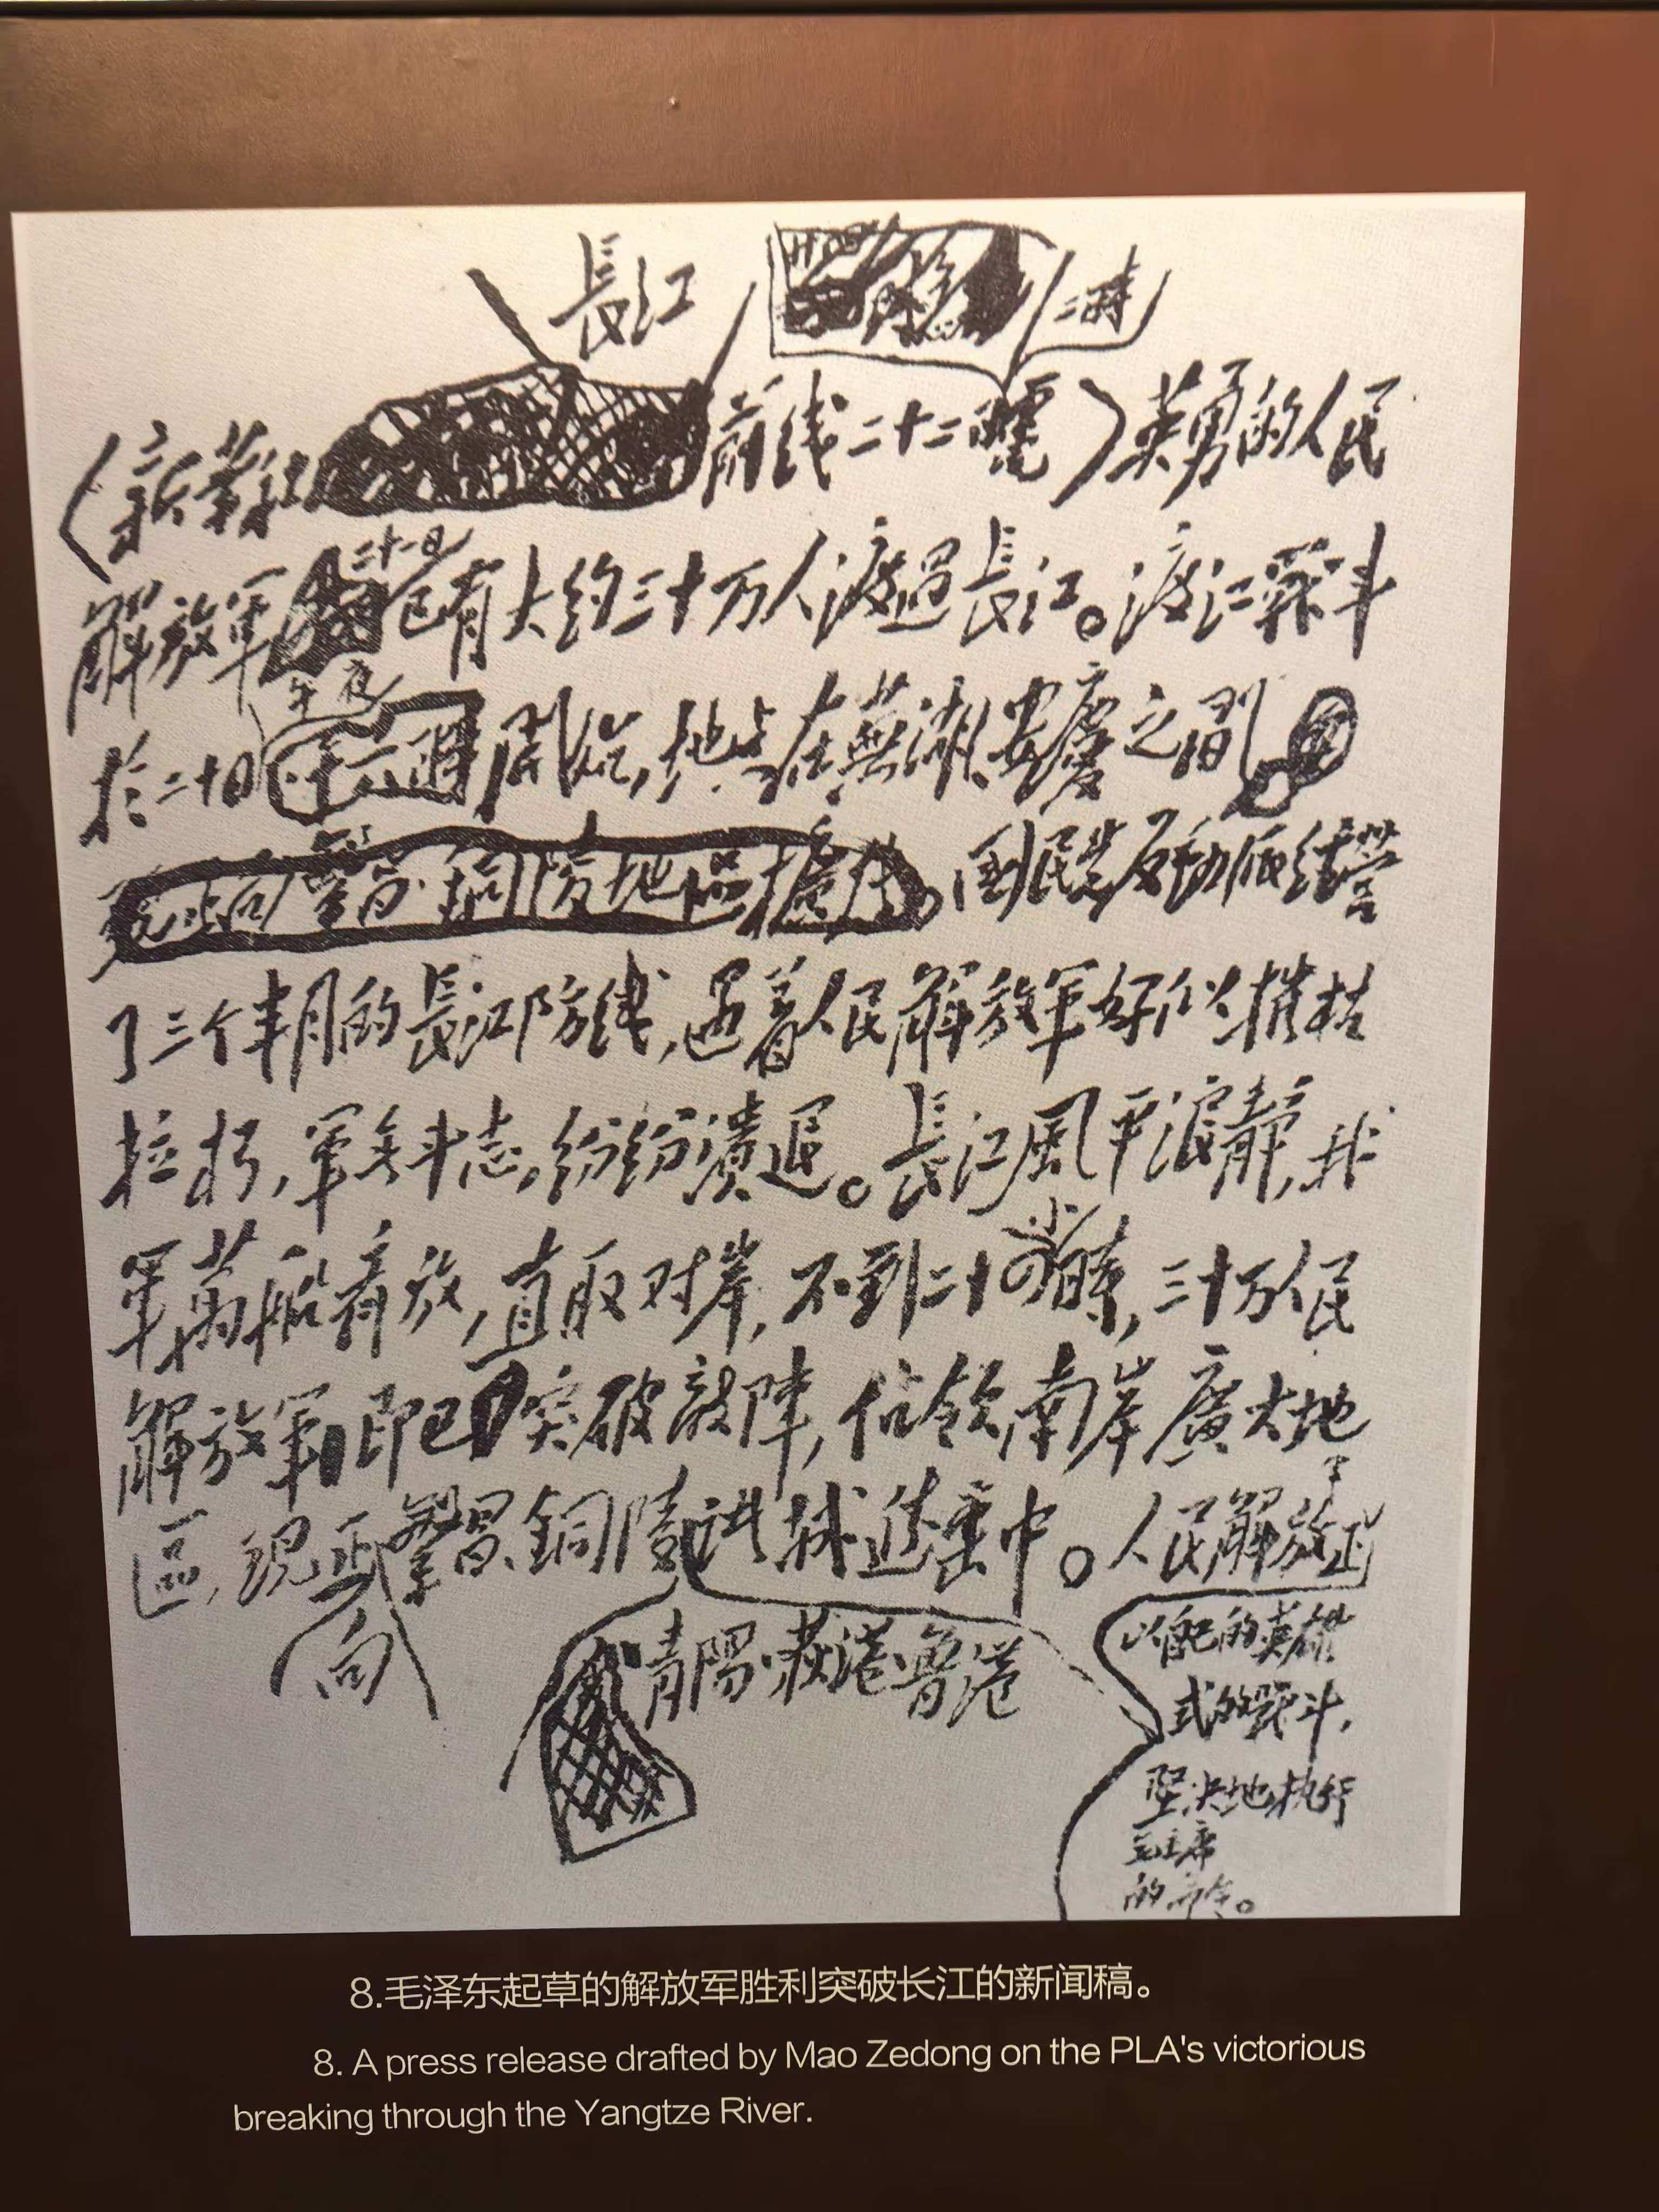 長江
二時
(新華社 前线二十二日電)英勇的人民
二十一日
解放軍 已有大约三十万人渡过長江。渡江戰斗
午夜
於二十日 開始,地点在蕪湖、安慶之間
繁昌、銅陵地區擴
。國民党反動派经营
了三个半月的長江防线,遇着人民解放軍好似摧枯
拉朽,軍無斗志,纷纷潰退。長江風平浪静,我
軍萬船齊放,直取对岸,不到二十四小時,三十万人民
解放軍即已突破敵陣,佔領南岸廣大地
區,现正向繁昌、銅陵、青陽、荻港、魯港諸城進擊中。人民解放軍正
以自己的英雄
式的戰斗,
坚决地执行
毛主席
的命令。
8.毛泽东起草的解放军胜利突破长江的新闻稿。
8. A press release drafted by Mao Zedong on the PLA's victorious
breaking through the Yangtze River.